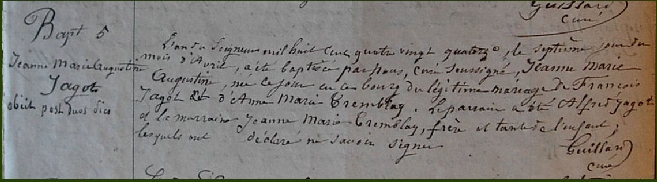 Guillard
Curé
Bapt 5
Jeanne Marie Augustine
Jagot
obiit post duos dies
L'an du Seigneur mil huit cent quatre vingt quatorze, le septième jour du
mois d'Avril, a été baptisée par nous, Curé soussigné, Jeanne Marie
Augustine, née ce jour en ce bourg du légitime mariage de François
Jagot et d'Anne Marie Tremblay. Le parrain a été Alfred Jagot
et la marraine Jeanne Marie Tremblay, frère et tante de l'enfant;
lesquels ont déclaré ne savoir signer
Guillard
Curé